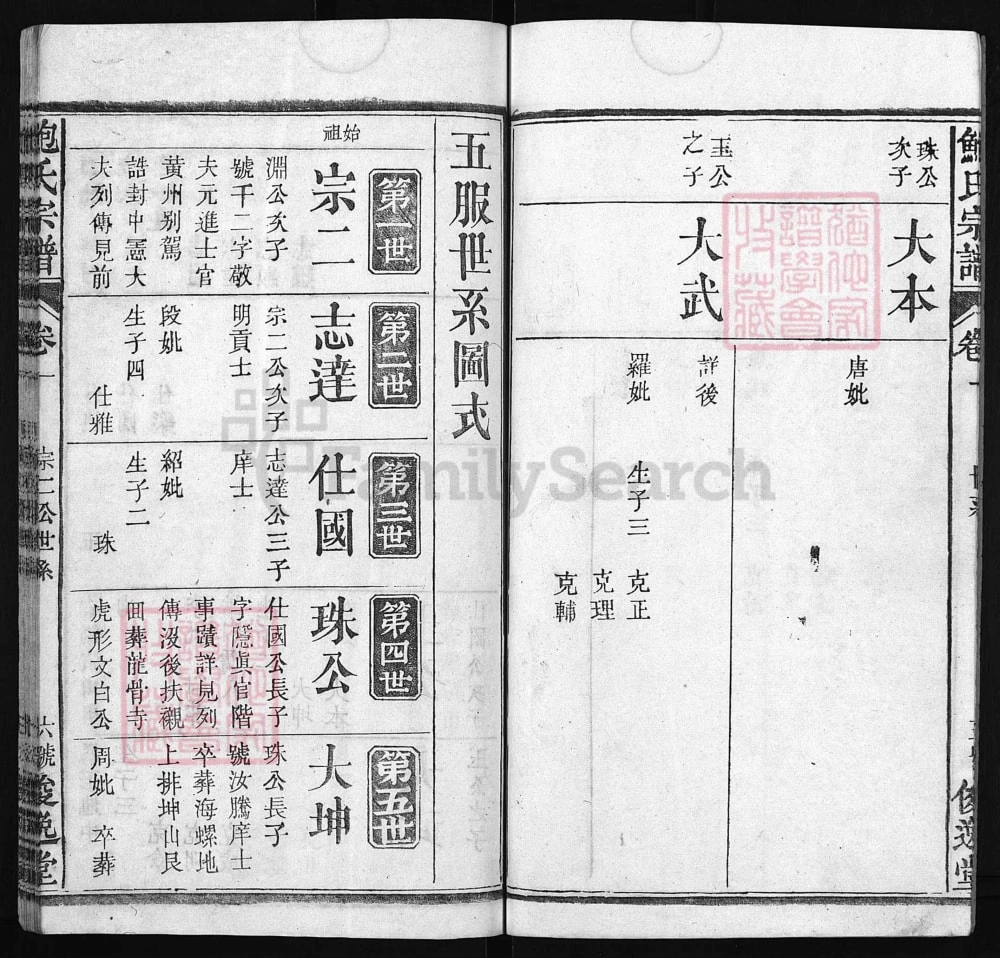 鮑氏宗譜
卷一
世系
俊逸堂
珠公
次子
大本
唐妣
玉公
之子
大武
詳後
羅妣
生子三
克正
克理
克輔
五服世系圖式
第一世
始祖
宗二
淵公次子
號千二字敬
夫元進士官
黃州別駕
誥封中憲大
夫列傳見前
第二世
志達
宗二公次子
明貢士
段妣
生子四
仕雅
第三世
仕國
志達公三子
庠士
紹妣
生子二
珠
第四世
珠公
仕國公長子
字隱眞官階
事蹟詳見列
傳沒後扶襯
田葬龍骨寺
虎形文白公
第五世
大坤
珠公長子
號汝騰庠士
卒葬海螺地
上排坤山艮
周妣
卒葬
鮑氏宗譜
卷一
宗二公世系
六號
俊逸堂
FamilySearch